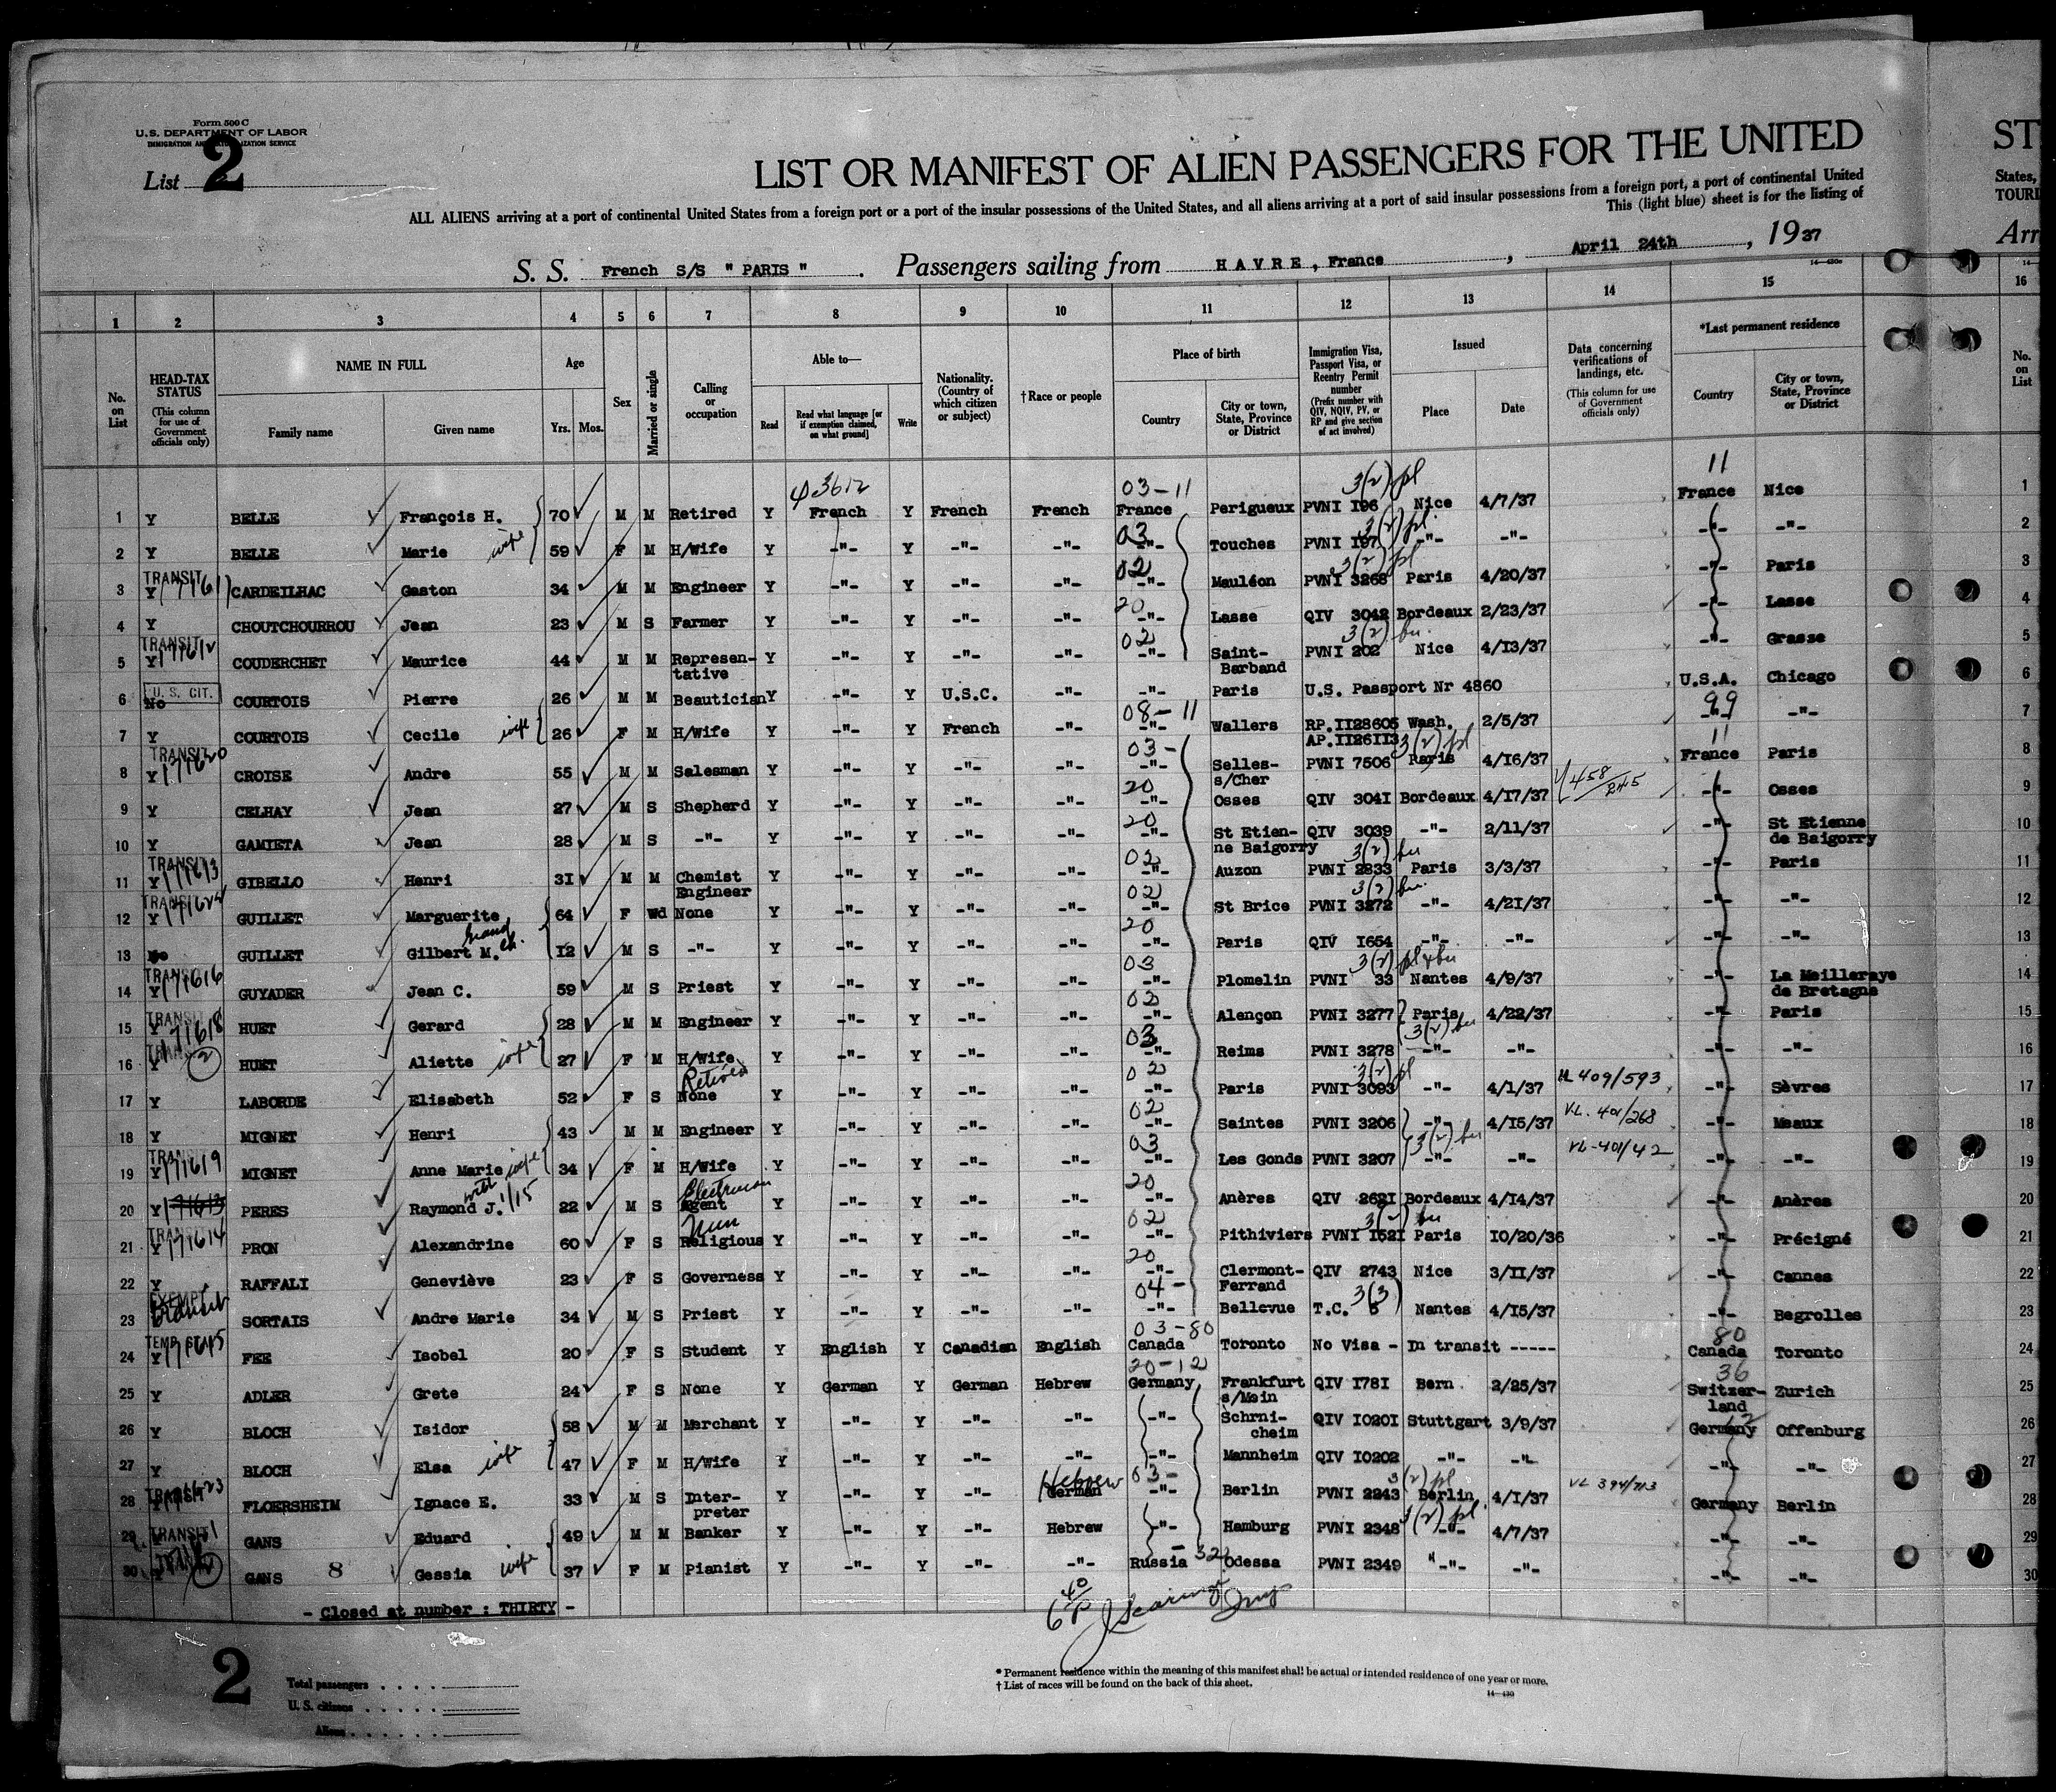 Form 500 C
U.S. DEPARTMENT OF LABOR
IMMIGRATION AND NATURALIZATION SERVICE
List 2
LIST OR MANIFEST OF ALIEN PASSENGERS FOR THE UNITED
ST
ALL ALIENS arriving at a port of continental United States from a foreign port or a port of the insular possessions of the United States, and all aliens arriving at a port of said insular possessions from a foreign port, a port of continental United
States,
This (light blue) sheet is for the listing of
TOURI
S. S. French S/S " PARIS " . Passengers sailing from HAVRE, France , April 24th , 1937
Arr
1 2 3 4 5 6 7 8 9 10 11 12 13 14 15 16
No. on List
HEAD-TAX STATUS (This column for use of Government officials only)
NAME IN FULL Family name Given name
Age Yrs. Mos.
Sex
Married or single
Calling or occupation
Able to— Read Read what language [or if exemption claimed, on what ground] Write
Nationality. (Country of which citizen or subject)
† Race or people
Place of birth Country City or town, State, Province or District
Immigration Visa, Passport Visa, or Reentry Permit number (Prefix number with QIV, NQIV, PV, or RP and give section of act involved)
Issued Place Date
Data concerning verifications of landings, etc. (This column for use of Government officials only)
*Last permanent residence Country City or town, State, Province or District
No. on List
03-11 3(2) pl 11
1 Y BELLE François H. 70 M M Retired Y French Y French French France Perigueux PVNI I96 Nice 4/7/37 France Nice 1
03 3(2) pl
2 Y BELLE Marie wife 59 F M H/Wife Y -"- Y -"- -"- -"- Touches PVNI I97 -"- -"- -"- -"- 2
TRANSIT 02 3(2) pl
3 Y CARDEILHAC Gaston 34 M M Engineer Y -"- Y -"- -"- -"- Mauléon PVNI 3268 Paris 4/20/37 -"- Paris 3
20
4 Y CHOUTCHOURROU Jean 23 M S Farmer Y -"- Y -"- -"- -"- Lasse QIV 3042 Bordeaux 2/23/37 -"- Lasse 4
TRANSIT 171612 02 3(2) bu.
5 Y COUDERCHET Maurice 44 M M Represen-tative Y -"- Y -"- -"- -"- Saint-Barband PVNI 202 Nice 4/I3/37 -"- Grasse 5
U.S. CIT.
6 No COURTOIS Pierre 26 M M Beautician Y -"- Y U.S.C. -"- -"- Paris U.S. Passport Nr 4860 U.S.A. Chicago 6
08-11 99
7 Y COURTOIS Cecile wife 26 F M H/Wife Y -"- Y French -"- -"- Wallers RP.II28605 AP.II26II3 Wash. 2/5/37 -"- -"- 7
TRANSIT 171620 03- 3(2) pl 11
8 Y CROISE Andre 55 M M Salesman Y -"- Y -"- -"- -"- Selles-s/Cher PVNI 7506 Paris 4/I6/37 France Paris 8
20
9 Y CELHAY Jean 27 M S Shepherd Y -"- Y -"- -"- -"- Osses QIV 304I Bordeaux 4/I7/37 -"- Osses 9
20
10 Y GAMIETA Jean 28 M S -"- Y -"- Y -"- -"- -"- St Etien-ne Baigorry QIV 3039 -"- 2/II/37 -"- St Etienne de Baigorry 10
TRANSIT 171613 02 3(2) bu
11 Y GIBELLO Henri 3I M M Chemist Engineer Y -"- Y -"- -"- -"- Auzon PVNI 2833 Paris 3/3/37 -"- Paris 11
TRANSIT 02 3(2) bu.
12 Y GUILLET Marguerite 64 F Wd None Y -"- Y -"- -"- -"- St Brice PVNI 3272 -"- 4/2I/37 -"- -"- 12
20
13 No GUILLET Gilbert M. Grand ch. I2 M S -"- Y -"- Y -"- -"- -"- Paris QIV I654 -"- -"- -"- -"- 13
TRANSIT 171616 03 3(2) pl & bu
14 Y GUYADER Jean C. 59 M S Priest Y -"- Y -"- -"- -"- Plomelin PVNI 33 Nantes 4/9/37 -"- La Meilleraye de Bretagne 14
TRANSIT 171618 02
15 Y HUET Gerard 28 M M Engineer Y -"- Y -"- -"- -"- Alençon PVNI 3277 Paris 4/22/37 -"- Paris 15
2 03 3(2) bu
16 Y HUET Aliette wife 27 F M H/Wife Y -"- Y -"- -"- -"- Reims PVNI 3278 -"- -"- -"- -"- 16
Retired 02 3(2) pl 409/593
17 Y LABORDE Elisabeth 52 F S None Y -"- Y -"- -"- -"- Paris PVNI 3093 -"- 4/1/37 -"- Sèvres 17
02 VL. 401/268
18 Y MIGNET Henri 43 M M Engineer Y -"- Y -"- -"- -"- Saintes PVNI 3206 -"- 4/I5/37 -"- Meaux 18
TRANSIT 171619 03 3(2) bu VL-401/42
19 Y MIGNET Anne Marie wife 34 F M H/Wife Y -"- Y -"- -"- -"- Les Gonds PVNI 3207 -"- -"- -"- -"- 19
20
20 Y 171613 PERES Raymond J. 1/15 22 M S Electrician Agent Y -"- Y -"- -"- -"- Anères QIV 262I Bordeaux 4/I4/37 -"- Anères 20
TRANSIT 171614 Nun 02 3(2) bu
21 Y PRON Alexandrine 60 F S Religious Y -"- Y -"- -"- -"- Pithiviers PVNI I52I Paris IO/20/36 -"- Précigné 21
20
22 Y RAFFALI Geneviève 23 F S Governess Y -"- Y -"- -"- -"- Clermont-Ferrand QIV 2743 Nice 3/II/37 -"- Cannes 22
EXEMPT transit 04- 3(3)
23 SORTAIS Andre Marie 34 M S Priest Y -"- Y -"- -"- -"- Bellevue T.C. 5 Nantes 4/I5/37 -"- Begrolles 23
03-80 80
24 Y FEE Isobel 20 F S Student Y English Y Canadian English Canada Toronto No Visa - In transit ----- Canada Toronto 24
20-12 36
25 Y ADLER Grete 24 F S None Y German Y German Hebrew Germany Frankfurt s/Mein QIV I78I Bern 2/25/37 Switzer-land Zurich 25
26 Y BLOCH Isidor 58 M M Merchant Y -"- Y -"- -"- -"- Schrni-cheim QIV IO20I Stuttgart 3/9/37 Germany Offenburg 26
27 Y BLOCH Elsa wife 47 F M H/Wife Y -"- Y -"- -"- -"- Mannheim QIV IO202 -"- -"- -"- -"- 27
Hebrew 03- 3(2) pl VL 394/713
28 FLOERSHEIM Ignace E. 33 M S Inter-preter Y -"- Y -"- German -"- Berlin PVNI 2243 Berlin 4/I/37 Germany Berlin 28
TRANSIT 3(2) pl
29 GANS Eduard 49 M M Banker Y -"- Y -"- Hebrew -"- Hamburg PVNI 2348 -"- 4/7/37 -"- -"- 29
30 GANS 8 Gessia wife 37 F M Pianist Y -"- Y -"- -"- Russia 32 Odessa PVNI 2349 -"- -"- -"- -"- 30
- Closed at number : THIRTY -
2
Total passengers
U. S. citizens
Aliens
* Permanent residence within the meaning of this manifest shall be actual or intended residence of one year or more.
† List of races will be found on the back of this sheet.
14—430